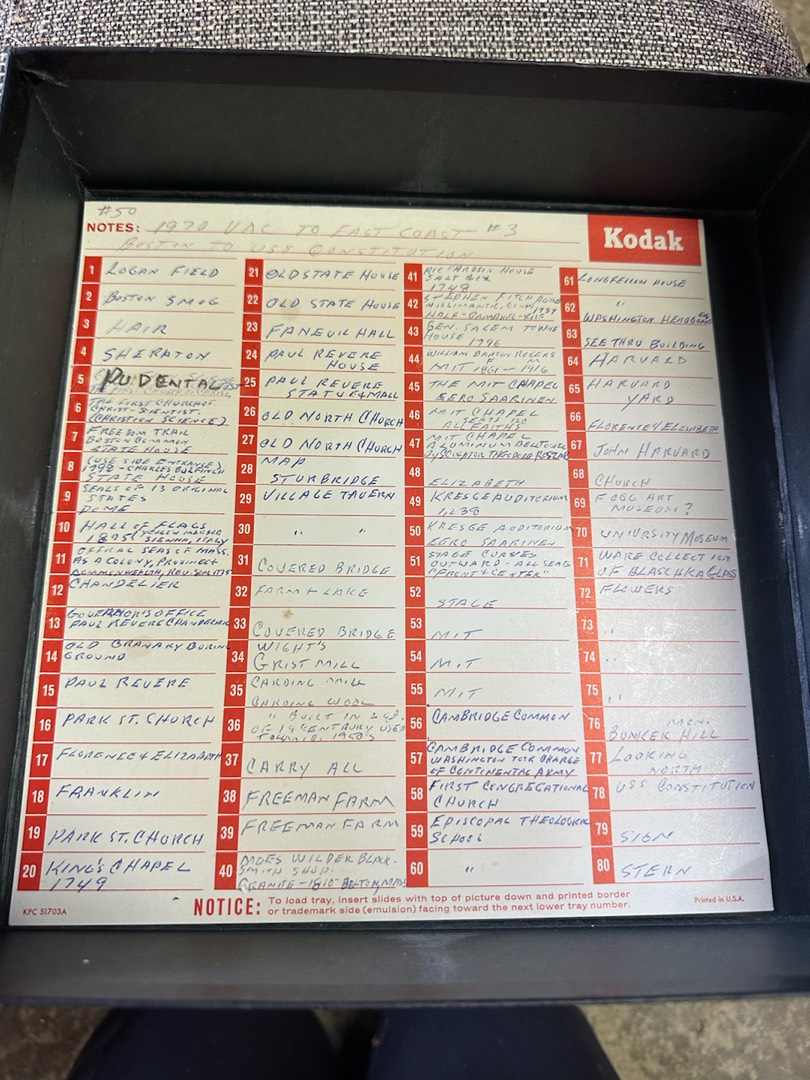 #50
NOTES: 1970 VAC TO EAST COAST #3
BOSTON TO USS CONSTITUTION
Kodak
1 LOGAN FIELD
2 BOSTON SMOG
3 HAIR
4 SHERATON
5 PUDENTAL
6 THE FIRST CHURCH OF
CHRIST-SCIENTIST.
(CHRISTIAN SCIENCE)
7 FREEDOM TRAIL
BOSTON COMMON
STATE HOUSE
8 (USE SIDE ENTRANCE)
1798-CHARLES BULFINCH
STATE HOUSE
9 SEALS OF 13 ORIGINAL
STATES
DOME
10 HALL OF FLAGS
1895 YELLOW MARBLE
SIENNA, ITALY
11 OFFICAL SEALS OF MASS.
AS A COLONY, PROVINCE
COMMONWEALTH,
12 CHANDELIER
13 GOVERNOR'S OFFICE
PAUL REVERE CHANDELIER
14 OLD GRANARY BURING
GROUND
15 PAUL REVERE
16 PARK ST. CHURCH
17 FLORENCE & ELIZABETH
18 FRANKLIN
19 PARK ST. CHURCH
20 KING'S CHAPEL
1749
21 OLD STATE HOUSE
22 OLD STATE HOUSE
23 FANEUIL HALL
24 PAUL REVERE
HOUSE
25 PAUL REVERE
STATUE & MALL
26 OLD NORTH CHURCH
27 OLD NORTH CHURCH
28 MAP
STURBRIDGE
29 VILLAGE TAVERN
30 " "
31 COVERED BRIDGE
32 FARM + LAKE
33 COVERED BRIDGE
34 WIGHT'S
GRIST MILL
35 CARDING MILL
CARDING WOOL
36 " BUILT IN 2 QT.
OF 19 CENTURY USED
1950'S
37 CARRY ALL
38 FREEMAN FARM
39 FREEMAN FARM
40 MOES WILDER BLACK-
SMITH SHOP.
GRANITE-1810-BOLTON, MASS
41 RICHARDSON HOUSE
SALT BOX
1748
42 STEPHEN FITCH HOUSE
WILLIMANTIC, CONN 1737
HALF-
43 GEN. SALEM TOWNE
HOUSE 1796
44 WILLIAM BARTON ROGERS
MIT 1861-1916
45 THE MIT CHAPEL
EERO SAARINEN
46 MIT CHAPEL
SEATS 130
ALL FAITHS
47 MIT CHAPEL
ALUMINUM BELLTOWER
BY SCULPTOR THEODORE ROSZAK
48 ELIZABETH
49 KRESGE AUDITORIUM
1,238
50 KRESGE AUDITORIUM
EERO SAARINEN
51 STAGE CURVES
OUTWARD-ALL SEATS
"FRONT & CENTER"
52 STAGE
53 MIT
54 MIT
55 MIT
56 CAMBRIDGE COMMON
57 CAMBRIDGE COMMON
WASHINGTON TOOK CHARGE
OF CONTINENTAL ARMY
58 FIRST CONGREGATIONAL
CHURCH
59 EPISCOPAL THEOLOGICAL
SCHOOL
60 "
61 LONGFELLOW HOUSE
62 "
WASHINGTON
63 SEE THRU BUILDING
64 HARVARD
65 HARVARD
YARD
66 FLORENCE & ELIZABETH
67 JOHN HARVARD
68 CHURCH
69 FOGG ART
MUSEUM?
70 UNIVRSITY MUSEUM
71 WARE COLLECTION
OF BLASCHKA GLASS
72 FLOWERS
73 "
74 "
75 "
76 MON.
BUNKER HILL
77 LOOKING
NORTH
78 USS CONSTITUTION
79 SIGN
80 STERN
KPC 51703A
NOTICE: To load tray, insert slides with top of picture down and printed border
or trademark side (emulsion) facing toward the next lower tray number.
Printed in U.S.A.